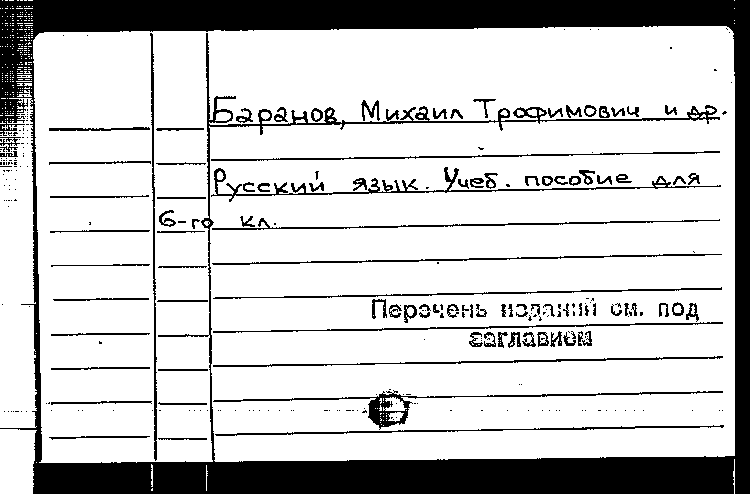 Баранов, Михаил Трофимович и др.
Русский язык. Учеб. пособие для
6-го кл.
Перечень изданий см. под
заглавием